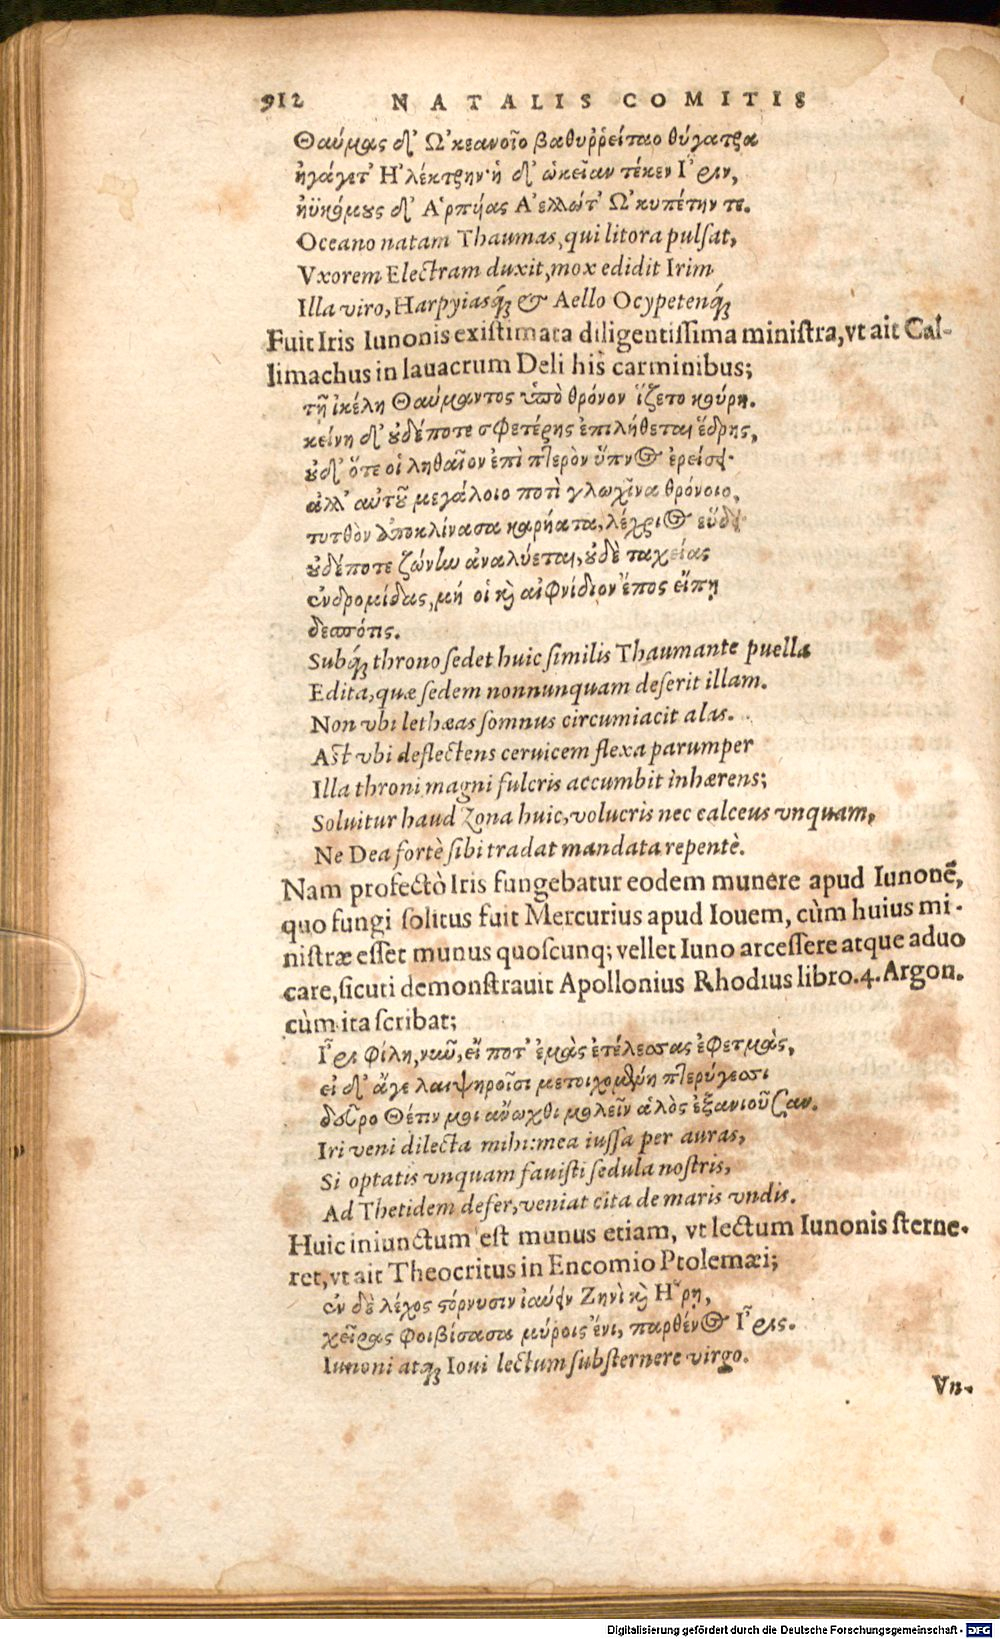 912 NATALIS COMITIS
Θαύμας δ' Ὠκεανοῖο βαθυῤῥείταο θύγατρα
ἠγάγετ' Ἠλέκτρην· ἡ δ' ὠκεῖαν τέκεν Ἶριν,
ἠϋκόμους δ' Ἁρπύας Ἀελλώτ' Ὠκυπέτην τε.
Oceano natam Thaumas, qui litora pulsat,
Vxorem Electram duxit, mox edidit Irim
Illa viro, Harpyiasq́; & Aello Ocypetenq́;
Fuit Iris Iunonis existimata diligentissima ministra, vt ait Cal-
limachus in lauacrum Deli his carminibus;
τῇ ἰκέλη Θαύμαντος ὑπὸ θρόνον ἵζετο κούρη.
κείνη δ' οὐδέποτε σφετέρης ἐπιλήθεται ἕδρης,
οὐδ' ὅτε οἱ ληθαῖον ἐπὶ πτερὸν ὕπνος ἐρείσει·
ἀλλ' αὐτοῦ μεγάλοιο ποτὶ γλωχῖνα θρόνοιο,
τυτθὸν ἀποκλίνασα καρήατα, λέχριος εὕδει·
οὐδέποτε ζώνην ἀναλύεται, οὐδὲ ταχείας
ἐνδρομίδας, μή οἱ καὶ αἰφνίδιον ἔπος εἴπῃ
δεσπότις.
Subq́; throno sedet huic similis Thaumante puella
Edita, quæ sedem nonnunquam deserit illam.
Non vbi lethæas somnus circumiacit alas.
Ast vbi deflectens ceruicem flexa parumper
Illa throni magni fulcris accumbit inhærens;
Soluitur haud Zona huic, volucris nec calceus vnquam,
Ne Dea fortè sibi tradat mandata repentè.
Nam profectò Iris fungebatur eodem munere apud Iunonē,
quo fungi solitus fuit Mercurius apud Iouem, cùm huius mi-
nistræ esset munus quoscunq; vellet Iuno arcessere atque aduo
care, sicuti demonstrauit Apollonius Rhodius libro. 4. Argon.
cùm ita scribat;
Ἶρι φίλη, νῦν, εἴ ποτ' ἐμὰς ἐτέλεσσας ἐφετμὰς,
εἰ δ' ἄγε λαιψηροῖσι μετοιχομένη πτερύγεσσι
δεῦρο Θέτιν μοι ἄνωχθι μολεῖν ἁλὸς ἐξανιοῦσαν.
Iri veni dilecta mihi: mea iussa per auras,
Si optatis vnquam fauisti sedula nostris,
Ad Thetidem defer, veniat cita de maris vndis.
Huic iniunctum est munus etiam, vt lectum Iunonis sterne-
ret, vt ait Theocritus in Encomio Ptolemæi;
ἐν δὲ λέχος στόρνυσιν ἰαύειν Ζηνὶ καὶ Ἥρῃ,
χεῖρας φοιβίσασα μύροις ἔνι, παρθένος Ἶρις.
Iunoni atq́; Ioui lectum substernere virgo.
Vn-
Digitalisierung gefördert durch die Deutsche Forschungsgemeinschaft - DFG